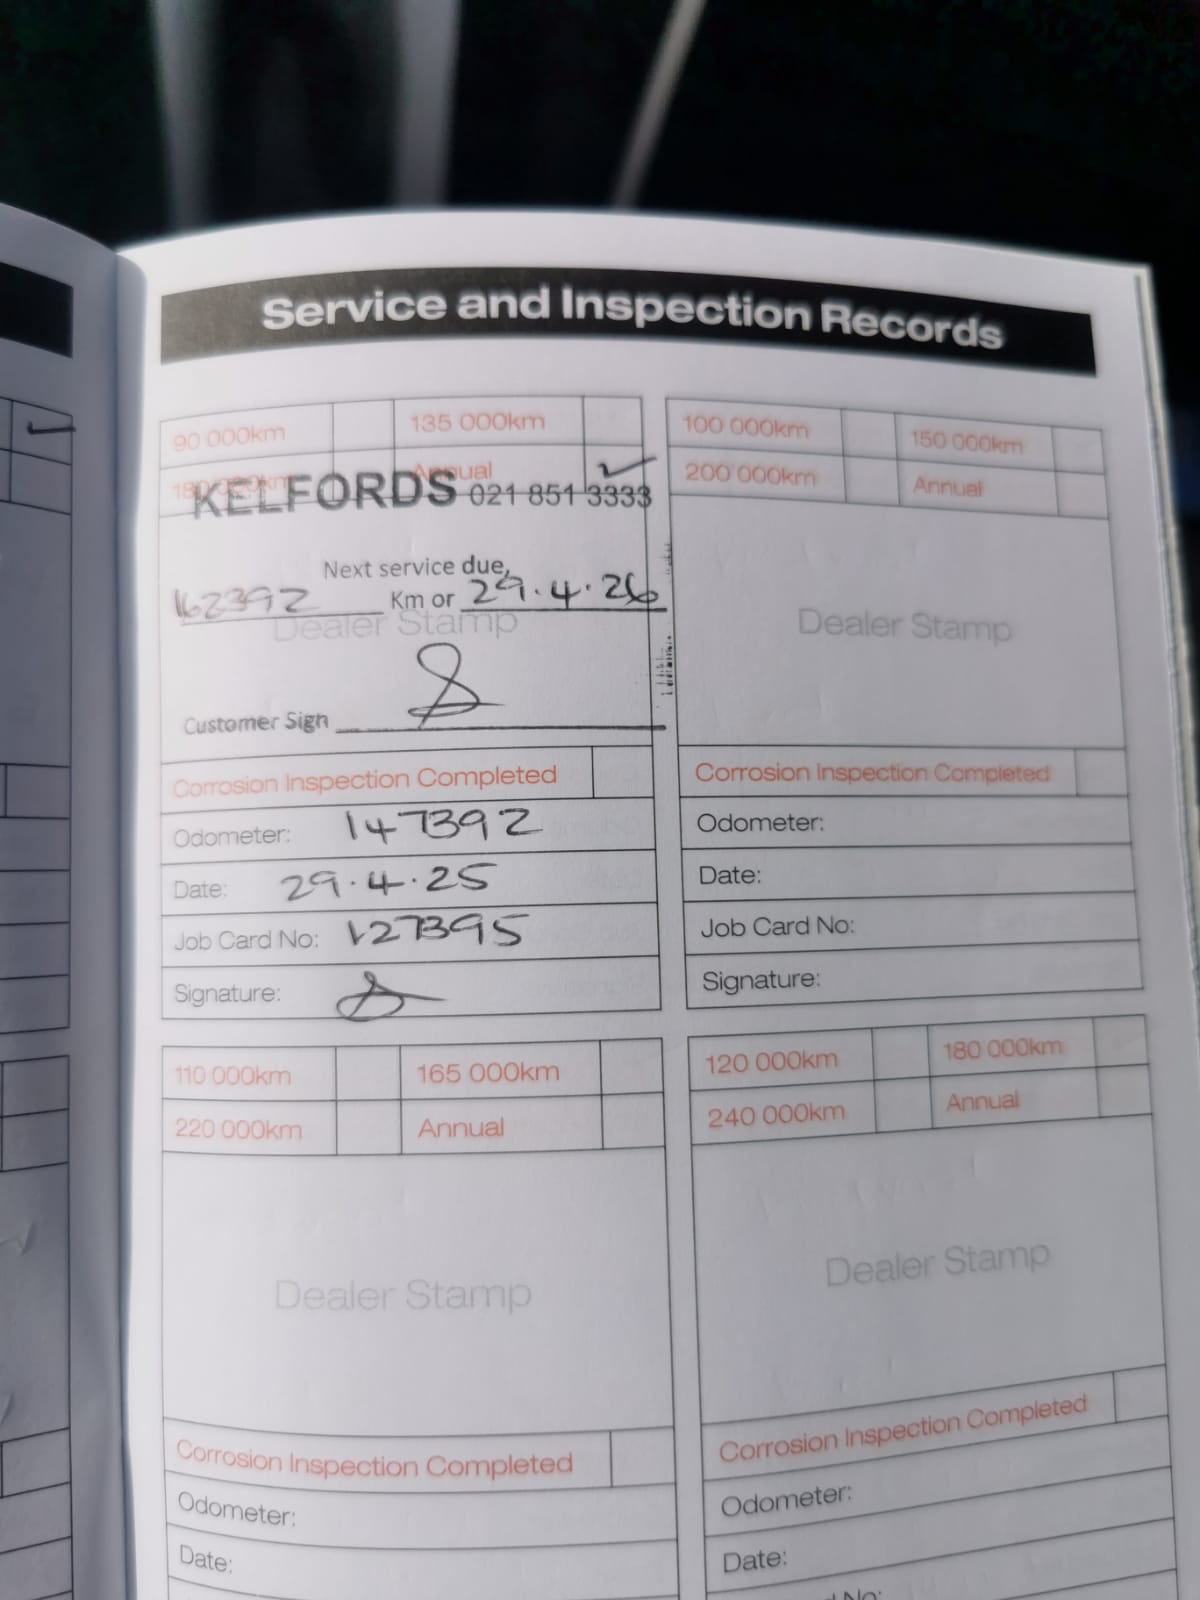 Service and Inspection Records
90 000km
135 000km
Annual
KELFORDS 021 851 3333
Next service due,
162392 Km or 29.4.26
Dealer Stamp
Customer Sign
Corrosion Inspection Completed
Odometer: 147392
Date: 29.4.25
Job Card No: 127395
Signature:
100 000km
150 000km
200 000km
Annual
Dealer Stamp
Corrosion Inspection Completed
Odometer:
Date:
Job Card No:
Signature:
110 000km
165 000km
220 000km
Annual
Dealer Stamp
Corrosion Inspection Completed
Odometer:
Date:
120 000km
180 000km
240 000km
Annual
Dealer Stamp
Corrosion Inspection Completed
Odometer:
Date:
No: